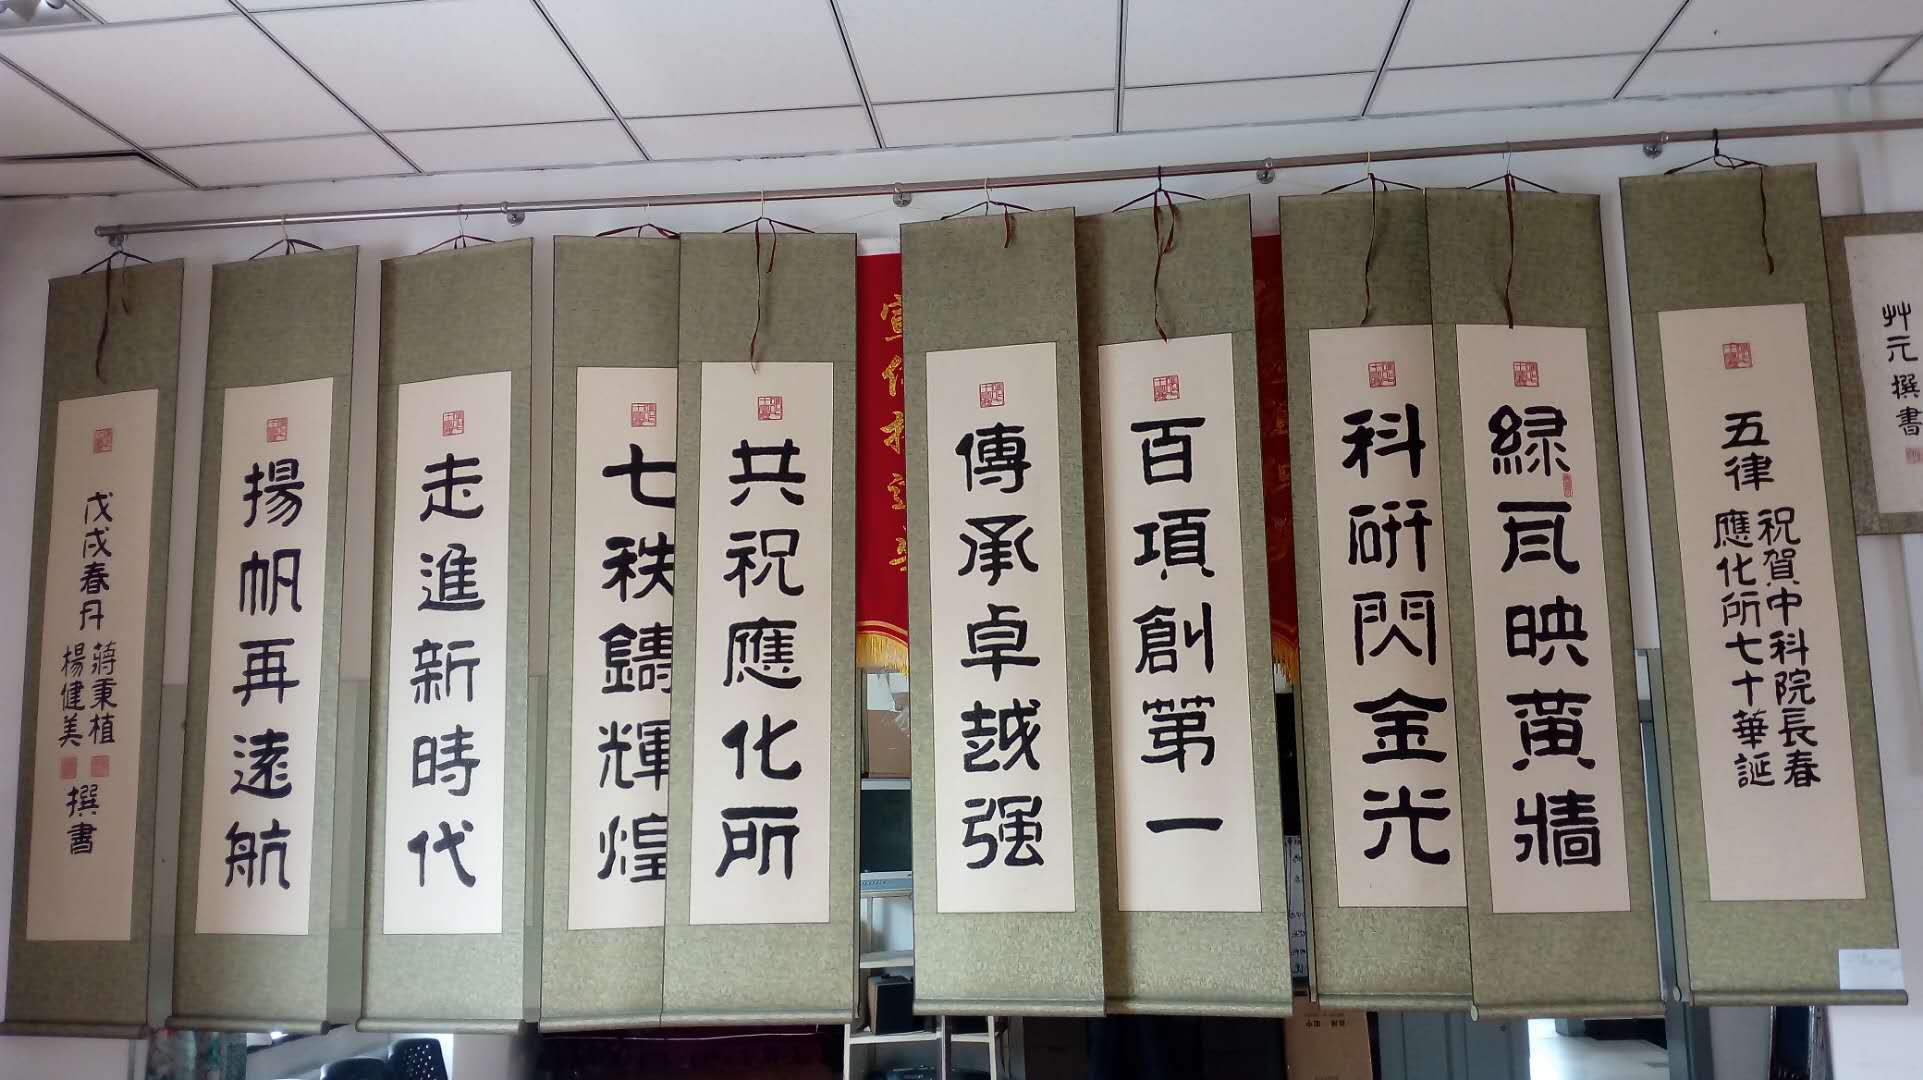 五律
祝賀中科院長春
應化所七十華誕
緑瓦映黄牆
科研閃金光
百項創第一
傳承卓越强
共祝應化所
七秩鑄輝煌
走進新時代
揚帆再遠航
戊戌春月
蔣秉植
楊健美
撰書
艸元撰書